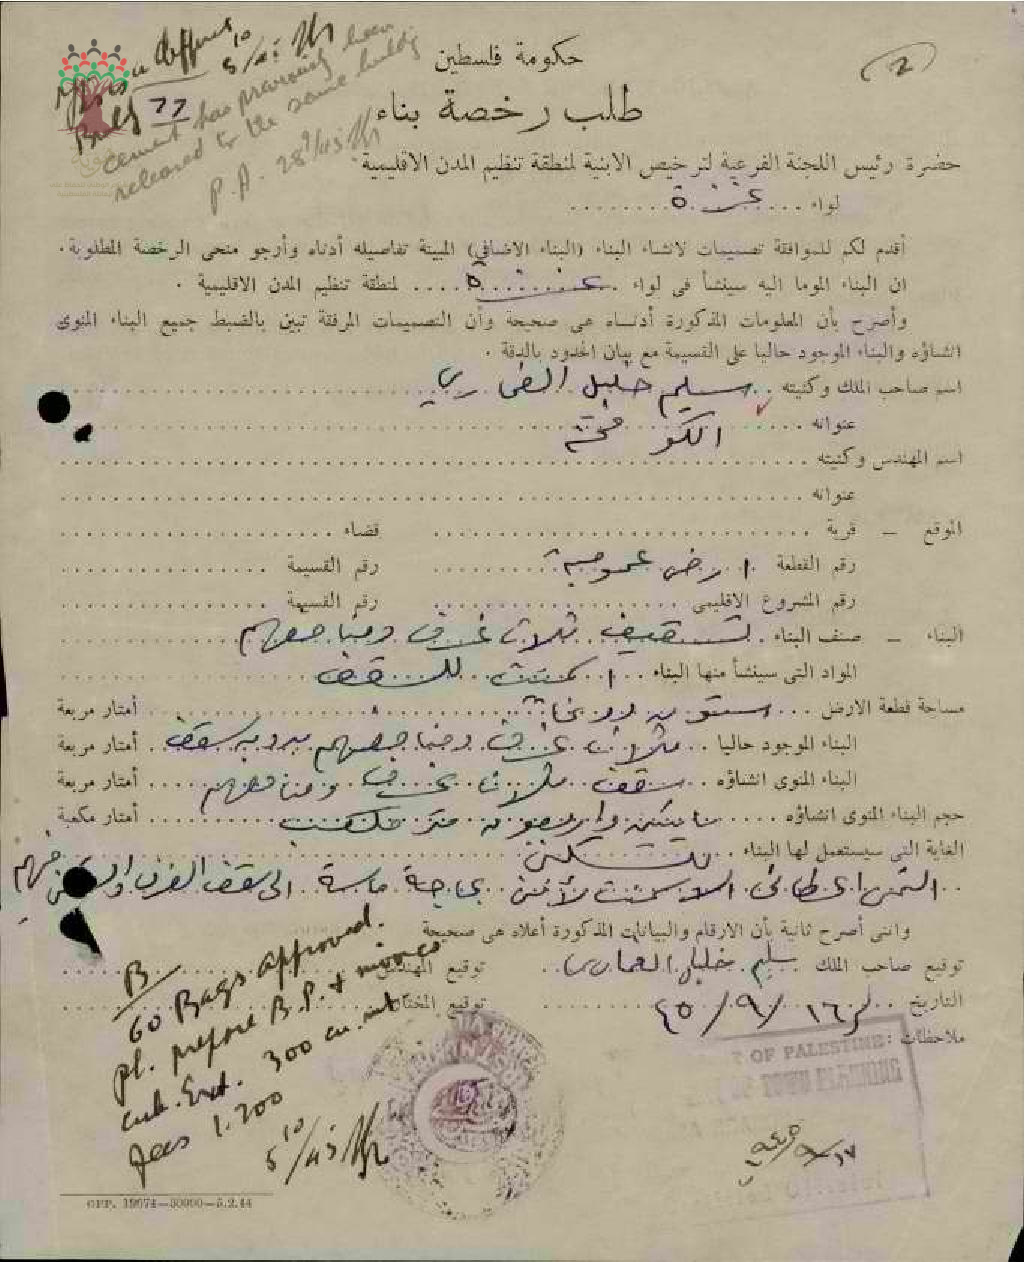 5/10/45
Build 77
cement has previously been
released to the same building
P.A. 28/9/45
2
حكومة فلسطين
طلب رخصة بناء
حضرة رئيس اللجنة الفرعية لترخيص الابنية لمنطقة تنظيم المدن الاقليمية
لواء ... غزة
أقدم لكم للموافقة تصميمات لانشاء البناء (البناء الاضافي) المبينة تفاصيله أدناه وأرجو منحى الرخصة المطلوبة.
ان البناء الموما اليه سينشأ فى لواء غزة لمنطقة تنظيم المدن الاقليمية .
وأصرح بأن المعلومات المذكورة أدناه هى صحيحة وأن التصميمات المرفقة تبين بالضبط جميع البناء المنوى
انشاؤه والبناء الموجود حاليا على القسيمة مع بيان الحدود بالدقة .
اسم صاحب الملك وكنيته سليم خليل
عنوانه الكوفخة
اسم المهندس وكنيته
عنوانه
الموقع — قرية قضاء
رقم القطعة ارض عمومية رقم القسيمة
رقم المشروع الاقليمى رقم القسيمة
البناء — صنف البناء تسقيف ثلاث غرف ومنافعهم
المواد التى سينشأ منها البناء اسمنت للسقف
مساحة قطعة الارض ستون أمتار مربعة
البناء الموجود حاليا ثلاث غرف ومنافعهم بدون سقف أمتار مربعة
البناء المنوى انشاؤه سقف ثلاث غرف ومنافعهم أمتار مربعة
حجم البناء المنوى انشاؤه مايتين واربعون متر مكعب أمتار مكعبة
الغاية التى سيستعمل لها البناء للسكن
التمس اعطائى الاسمنت لأننى بحاجة ماسة الى سقف الغرف
وانى أصرح ثانية بأن الارقام والبيانات المذكورة أعلاه هى صحيحة
توقيع صاحب الملك سليم خليل توقيع المهندس
التاريخ ١٦/٩/٤٥ توقيع المختار
ملاحظات :
B.
60 Bags approved.
pl. prepare B.P. +
cub. Ext. 300 cu. mt
fees 1.200
5/10/45
OF PALESTINE
OF TOWN PLANNING
١٧/٩/١٩٤٥
GPP. 19674—30000—5.2.44